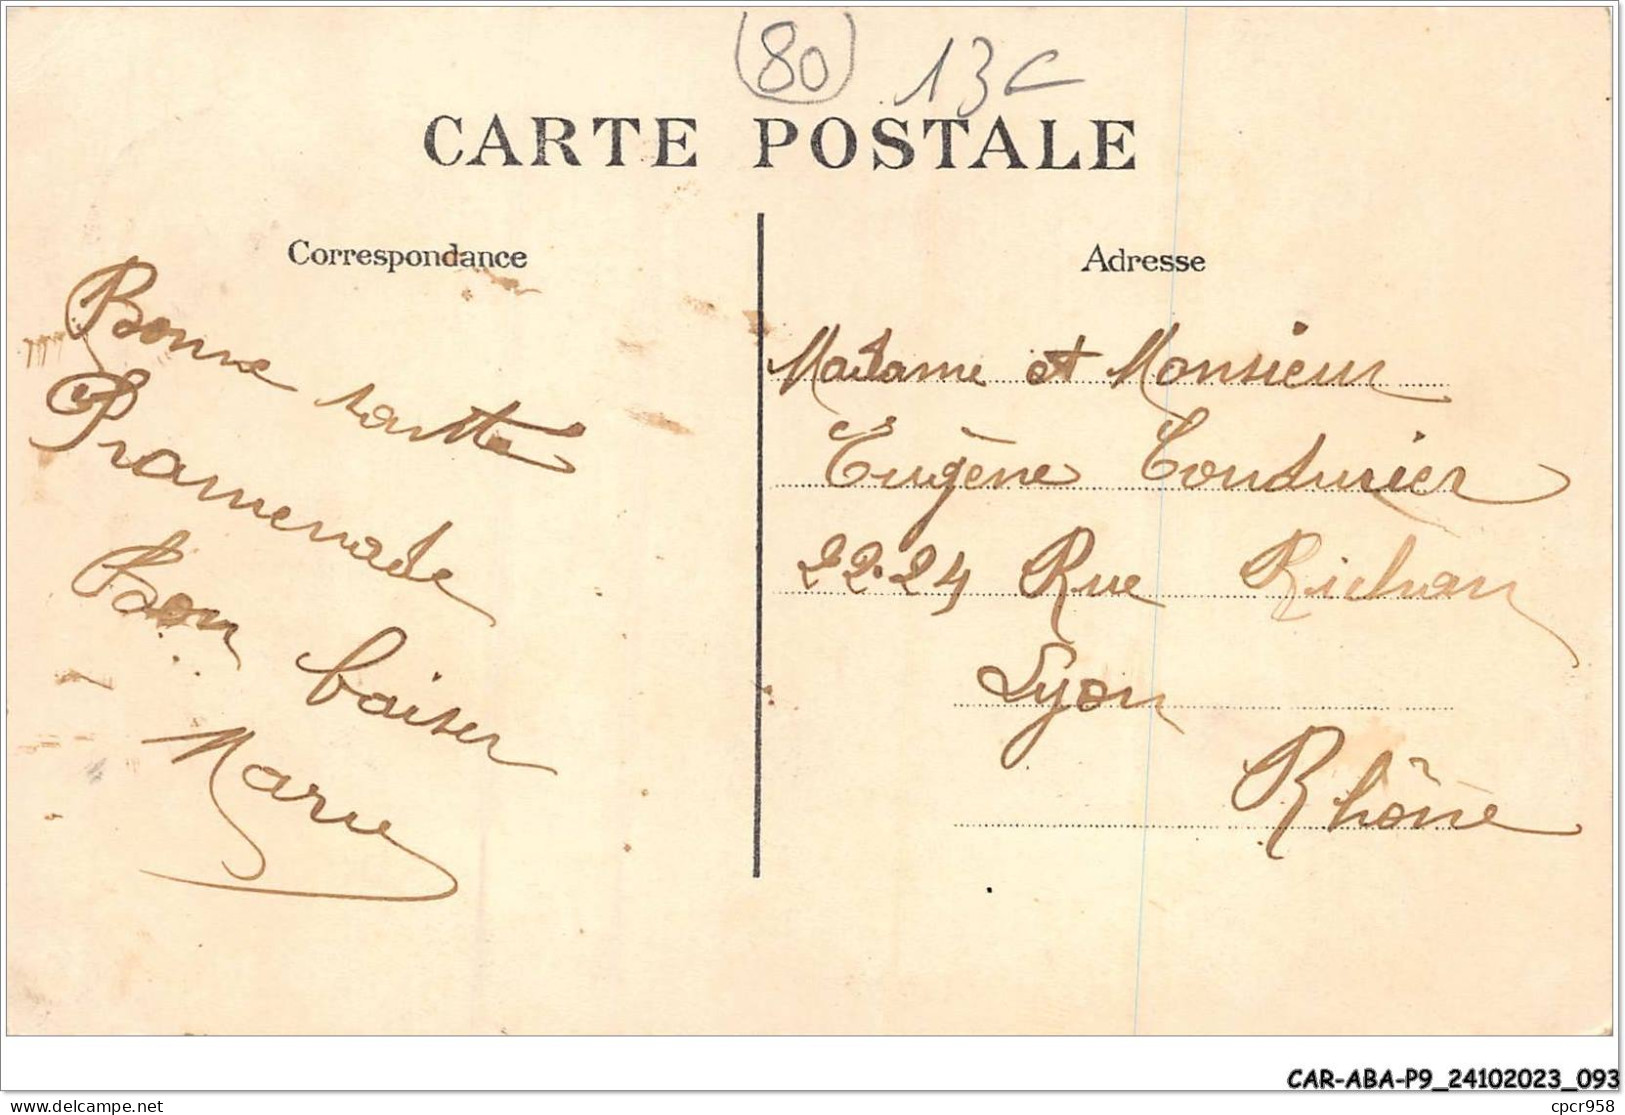 (80) 13c
CARTE POSTALE
Correspondance
Bonne santte
Pramenade
Bon baiser
Marie
Adresse
Madame et Monsieur
Eugène Couturier
22.24 Rue Richan
Lyon
Rhône
CAR-ABA-P9_24102023_093
delcampe.net
cpcr958